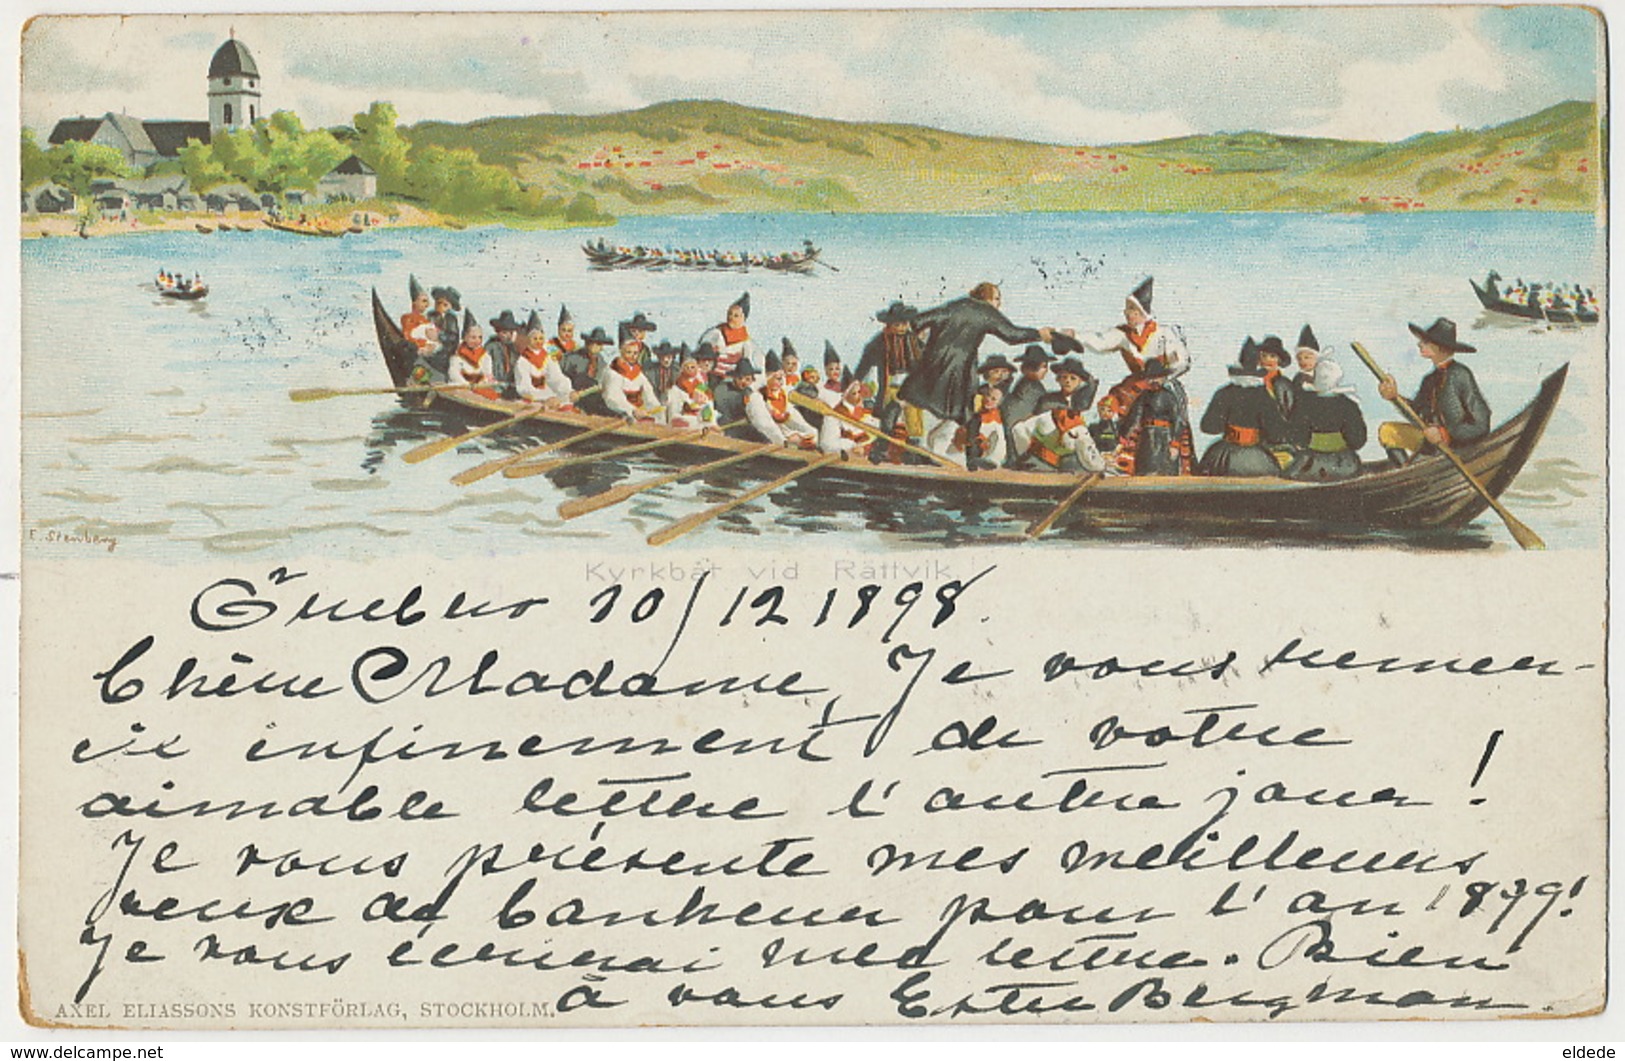 E. Stenberg
Kyrkbåt vid Rättvik.
Örebro 10/12 1898.
Chère Madame, Je vous remer-
cie infiniment de votre
aimable lettre l'autre jour!
Je vous présente mes meilleurs
veux de bonheur pour l'an 1899!
Je vous écrirai une lettre. Bien
à vous Ester Bergman.
AXEL ELIASSONS KONSTFÖRLAG, STOCKHOLM.
delcampe.net
eldede